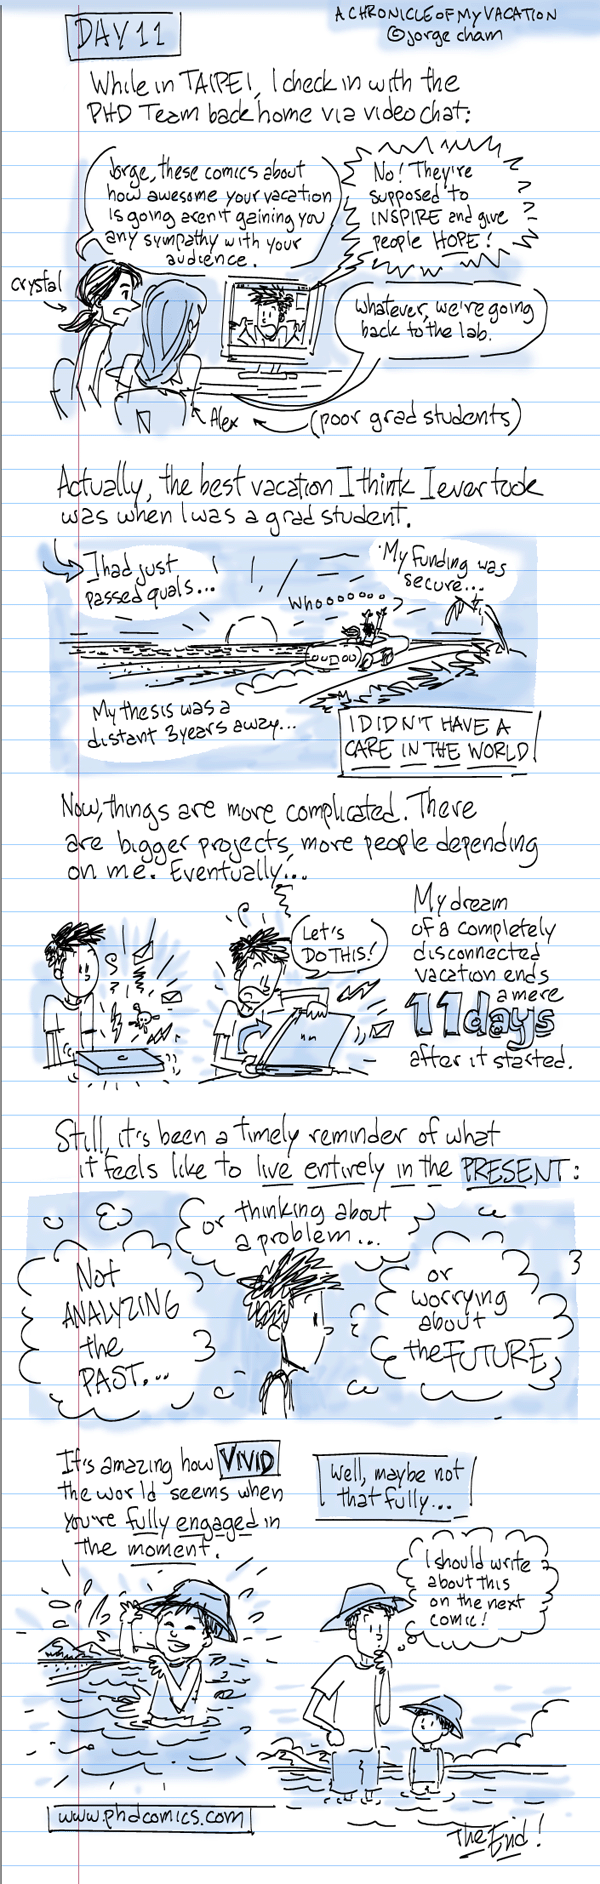 DAY 11
A CHRONICLE OF MY VACATION
© jorge cham
While in TAIPEI, I check in with the
PHD Team back home via video chat:
Jorge, these comics about
how awesome your vacation
is going aren't gaining you
any sympathy with your
audience.
No! They're
supposed to
INSPIRE and give
people HOPE!
crystal
Whatever, we're going
back to the lab.
Alex
(poor grad students)
Actually, the best vacation I think I ever took
was when I was a grad student.
I had just
passed quals...
My funding was
secure...
Whooooooo?
My thesis was a
distant 3 years away...
I DIDN'T HAVE A
CARE IN THE WORLD!
Now, things are more complicated. There
are bigger projects, more people depending
on me. Eventually...
Let's
DO THIS!
My dream
of a completely
disconnected
vacation ends
a mere
11 days
after it started.
Still, it's been a timely reminder of what
it feels like to live entirely in the PRESENT:
Not
ANALYZING
the
PAST...
or thinking about
a problem...
or
worrying
about
the FUTURE
It's amazing how VIVID
the world seems when
you're fully engaged in
the moment.
Well, maybe not
that fully...
I should write
about this
on the next
comic!
www.phdcomics.com
The End!